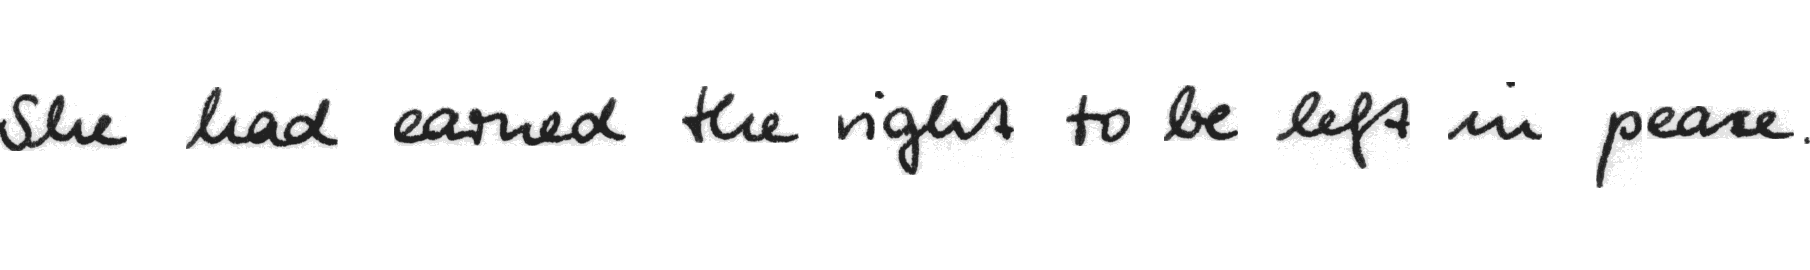 She had earned the right to be left in peace.